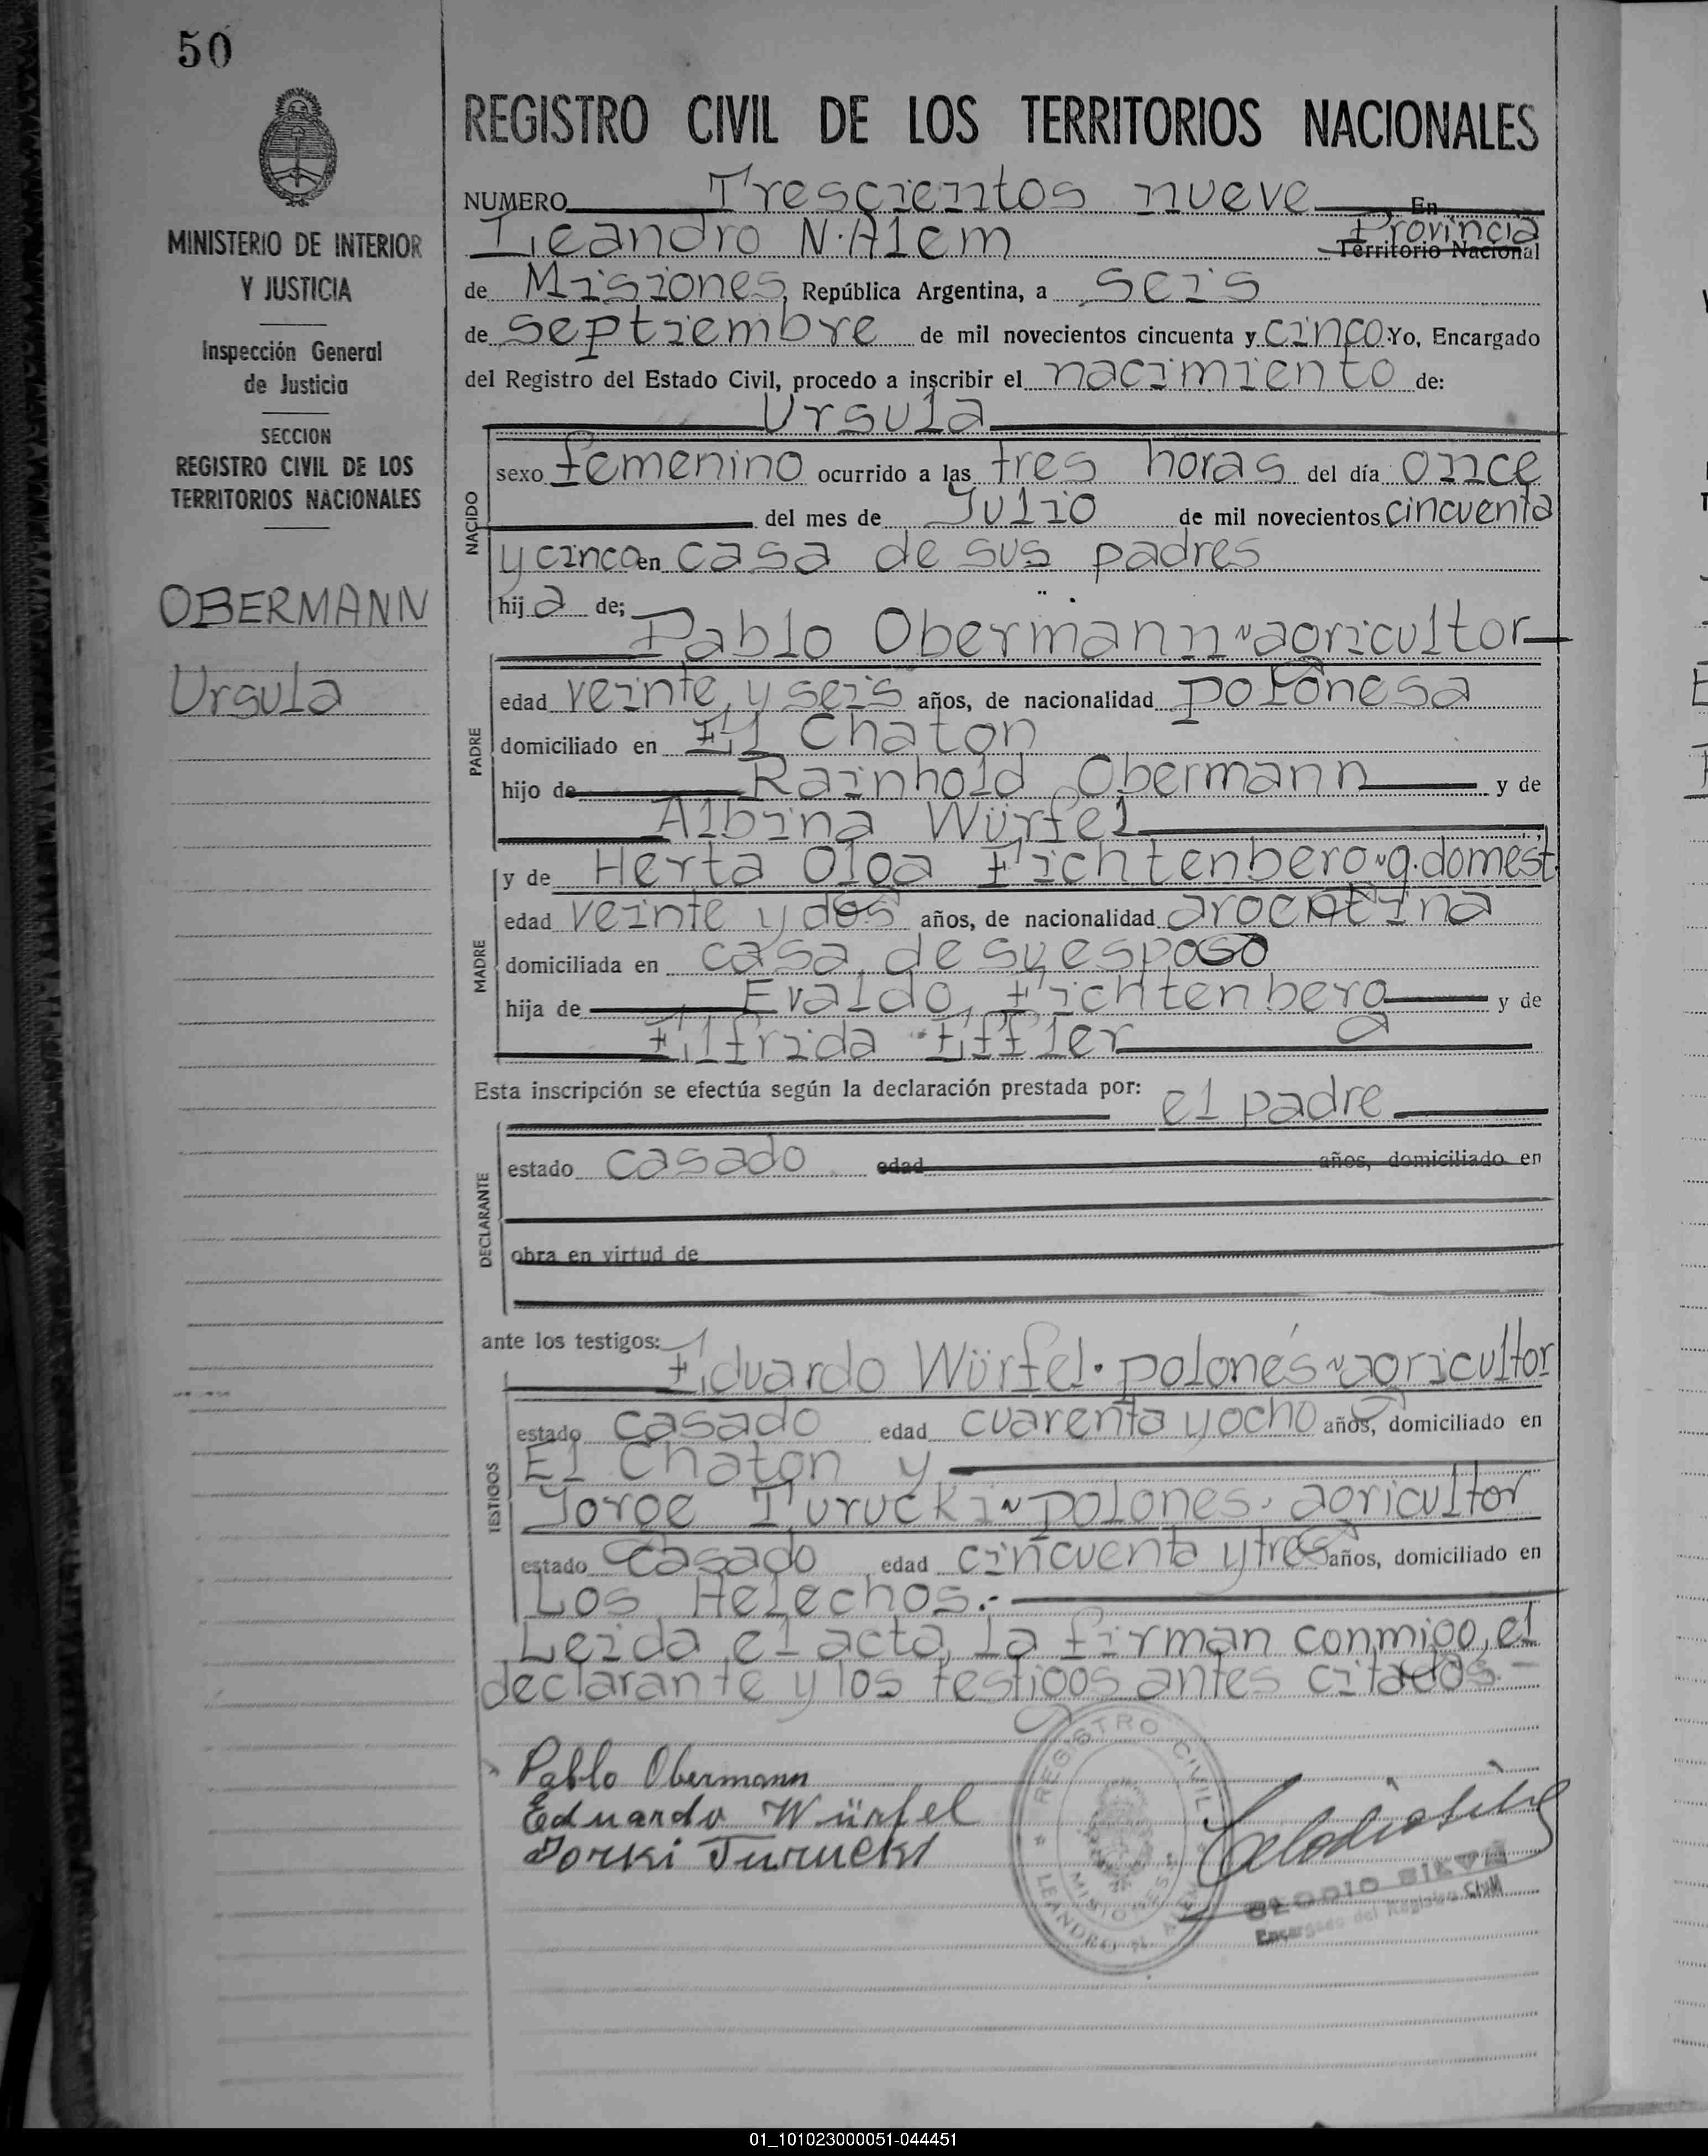 50
MINISTERIO DE INTERIOR
Y JUSTICIA
Inspección General
de Justicia
SECCION
REGISTRO CIVIL DE LOS
TERRITORIOS NACIONALES
OBERMANN
Ursula
REGISTRO CIVIL DE LOS TERRITORIOS NACIONALES
NUMERO Trescientos nueve En
Leandro N. Alem Provincia Territorio Nacional
de Misiones, República Argentina, a seis
de septiembre de mil novecientos cincuenta y cinco Yo, Encargado
del Registro del Estado Civil, procedo a inscribir el nacimiento de:
Ursula
NACIDO
sexo femenino ocurrido a las tres horas del día once
del mes de Julio de mil novecientos cincuenta
y cinco en casa de sus padres
hija de;
Pablo Obermann ~ agricultor
PADRE
edad veinte y seis años, de nacionalidad polonesa
domiciliado en El Chaton
hijo de Rainhold Obermann y de
Albina Würfel
y de Herta Olga Fichtenberg ~ q. domest.
MADRE
edad veinte y dos años, de nacionalidad argentina
domiciliada en casa de su esposo
hija de Evaldo Fichtenberg y de
Elfrida Effler
Esta inscripción se efectúa según la declaración prestada por: el padre
DECLARANTE
estado casado edad años, domiciliado en
obra en virtud de
ante los testigos:
Eduardo Würfel. polonés ~ agricultor
TESTIGOS
estado casado edad cuarenta y ocho años, domiciliado en
El Chaton y
Jorge Turucki ~ polones. agricultor
estado casado edad cincuenta y tres años, domiciliado en
Los Helechos.-
Leida el acta, la firman conmigo, el
declarante y los testigos antes citados.-
Pablo Obermann
Eduardo Würfel
Jorki Turucki
REGISTRO CIVIL
MISIONES
LEANDRO N. ALEM
CLODIO SILVA
Encargado del Registro Civil
01_101023000051-044451